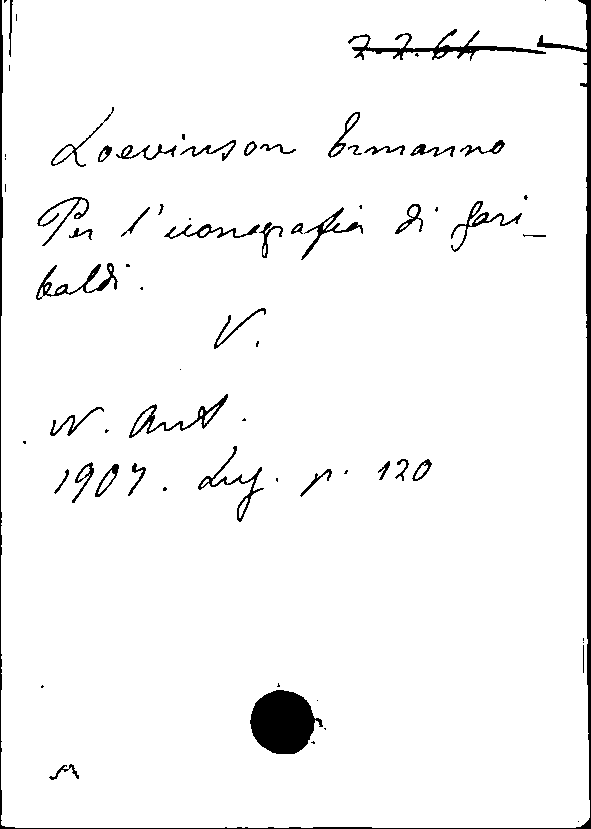 2.2.64
Loevinson Ermanno
Per l'iconografia di Gari-
baldi.
V.
N. Ant.
1907. Lug. p. 120